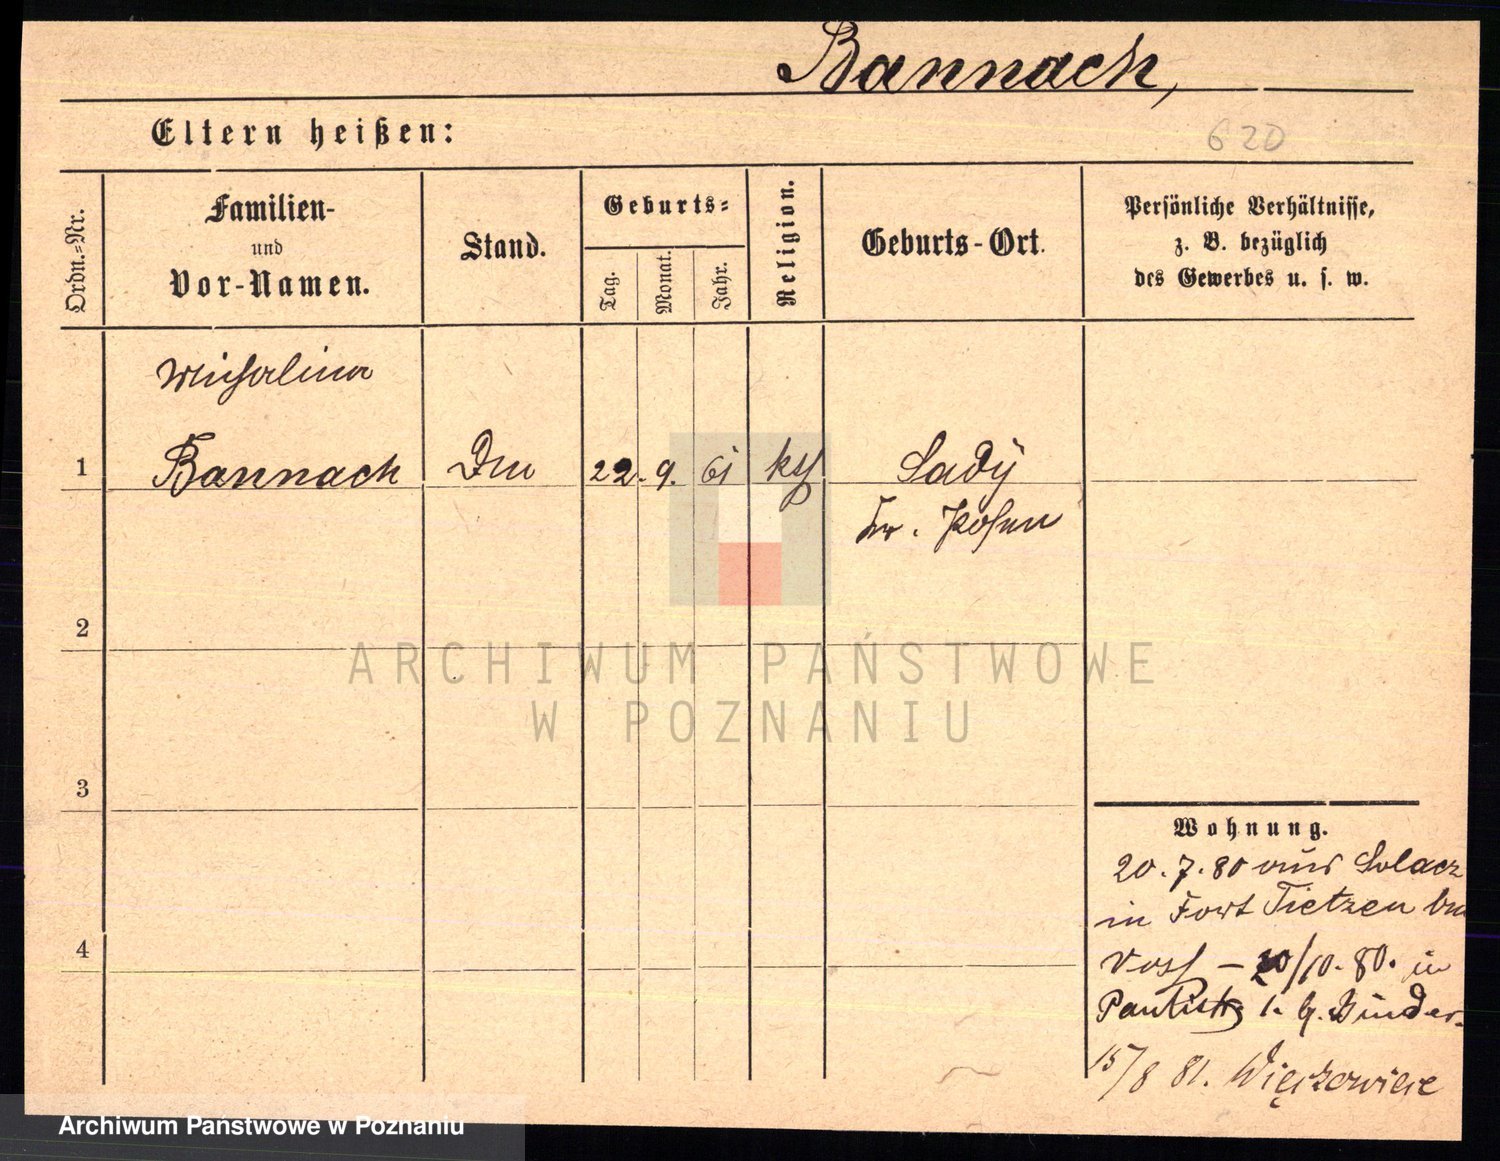 Bannach,
Eltern heißen:
620
Ordn.-Nr.
Familien-
und
Vor-Namen.
Stand.
Geburts-
Tag.
Monat.
Jahr.
Religion.
Geburts-Ort.
Persönliche Verhältnisse,
z. B. bezüglich
des Gewerbes u. s. w.
Michalina
1 Bannach 22. 9. 61 kth Sady
Kr. Posen
2
ARCHIWUM PAŃSTWOWE
W POZNANIU
3
Wohnung.
20.7.80 aus Solacz
in Fort Tietzen
4
Voss — 20/10. 80. in
1. b.
15/8 81.
Archiwum Państwowe w Poznaniu